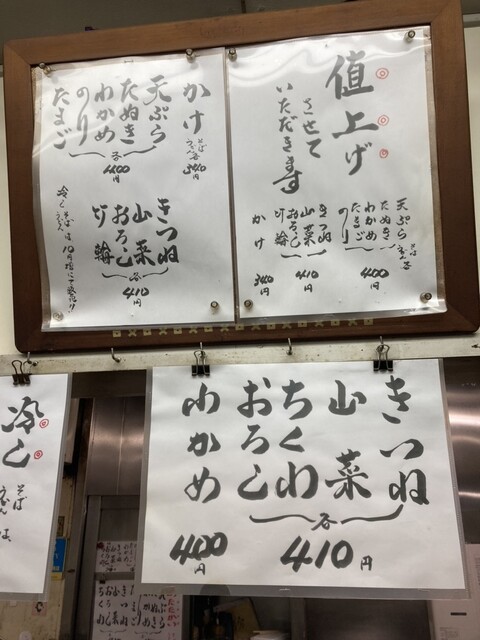 値上げ
させて
いただきます
天ぷら
たぬき
わかめ
たまご
のり
そば
うどん各
400円
きつね
山菜
おろし
竹輪
410円
かけ
340円
かけ
そば
うどん各
340円
天ぷら
たぬき
わかめ
のり
たまご
各
400円
きつね
山菜
おろし
竹輪
各
410円
きつね
山菜
ちくわ
おろし
各
410円
わかめ
400円
冷し
そば
うどん
は